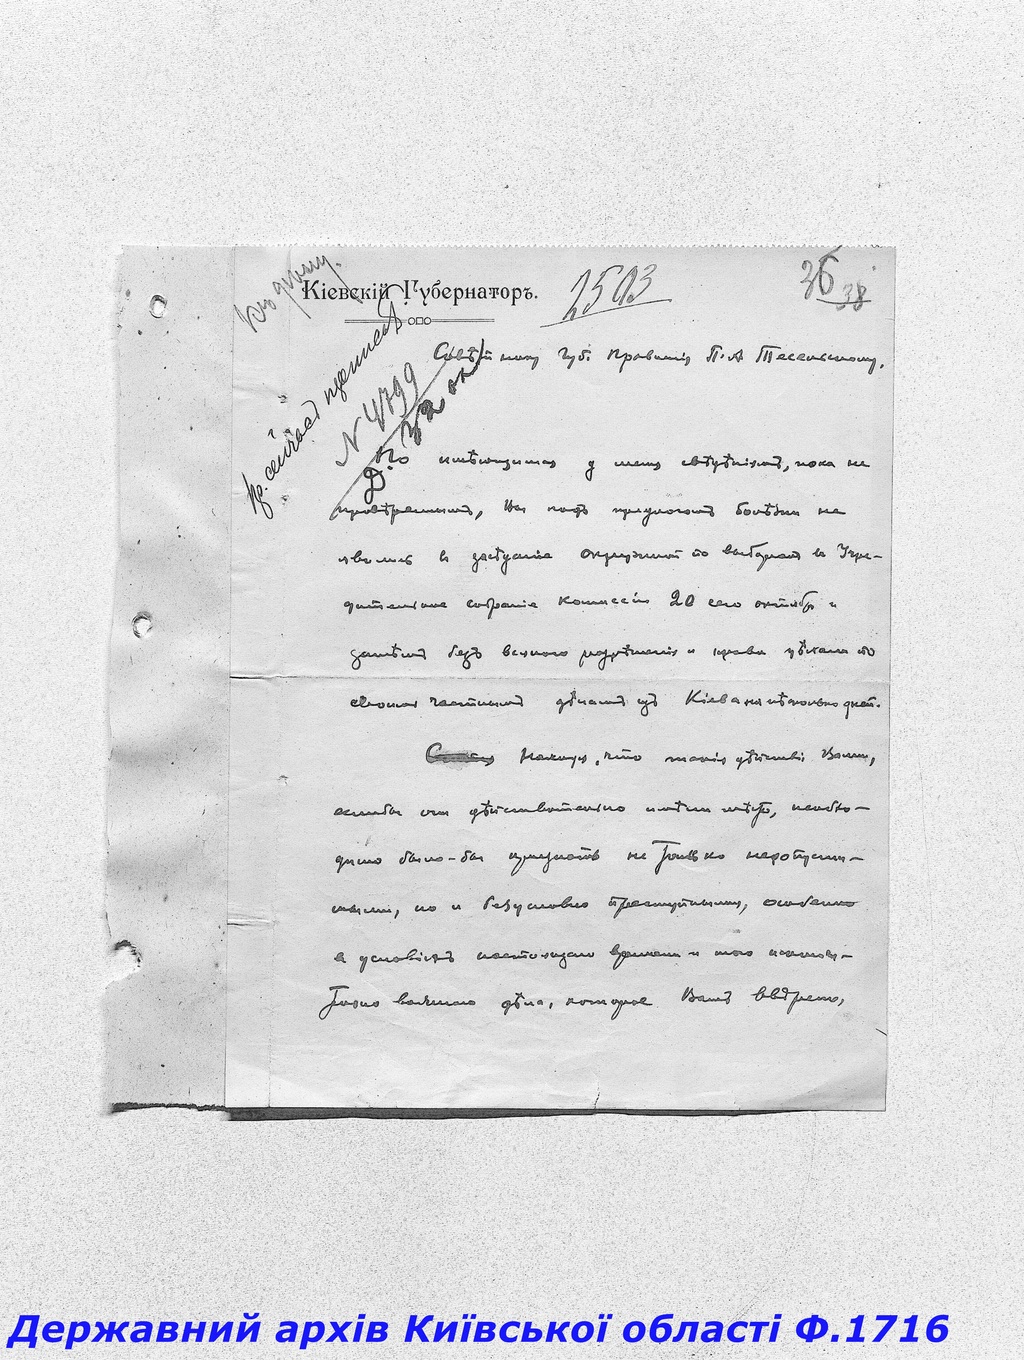 Къ дѣлу.
Кіевскій Губернаторъ.
2503
36
38
N 4799
22 ок
Совѣтнику Губ. Правленія П. А. Тесельскому.
По имѣющимся у меня свѣдѣніямъ, пока не
провѣреннымъ, Вы подъ предлогомъ болѣзни не
явились въ засѣданіе окружной по выборамъ въ Учре-
дительное собраніе Комиссіи 20 сего октября и
затѣмъ безъ всякаго разрѣшенія и права уѣхали по
своимъ частнымъ дѣламъ изъ Кіева на нѣсколько дней.
Нахожу, что такія дѣйствія Ваши,
если бы они дѣйствительно имѣли мѣсто, необхо-
димо было-бы признать не только недопусти-
мыми, но и безусловно преступными, особенно
въ условіяхъ настоящаго времени и того
важнаго дѣла, которое Вамъ ввѣрено,
Державний архів Київської області Ф.1716